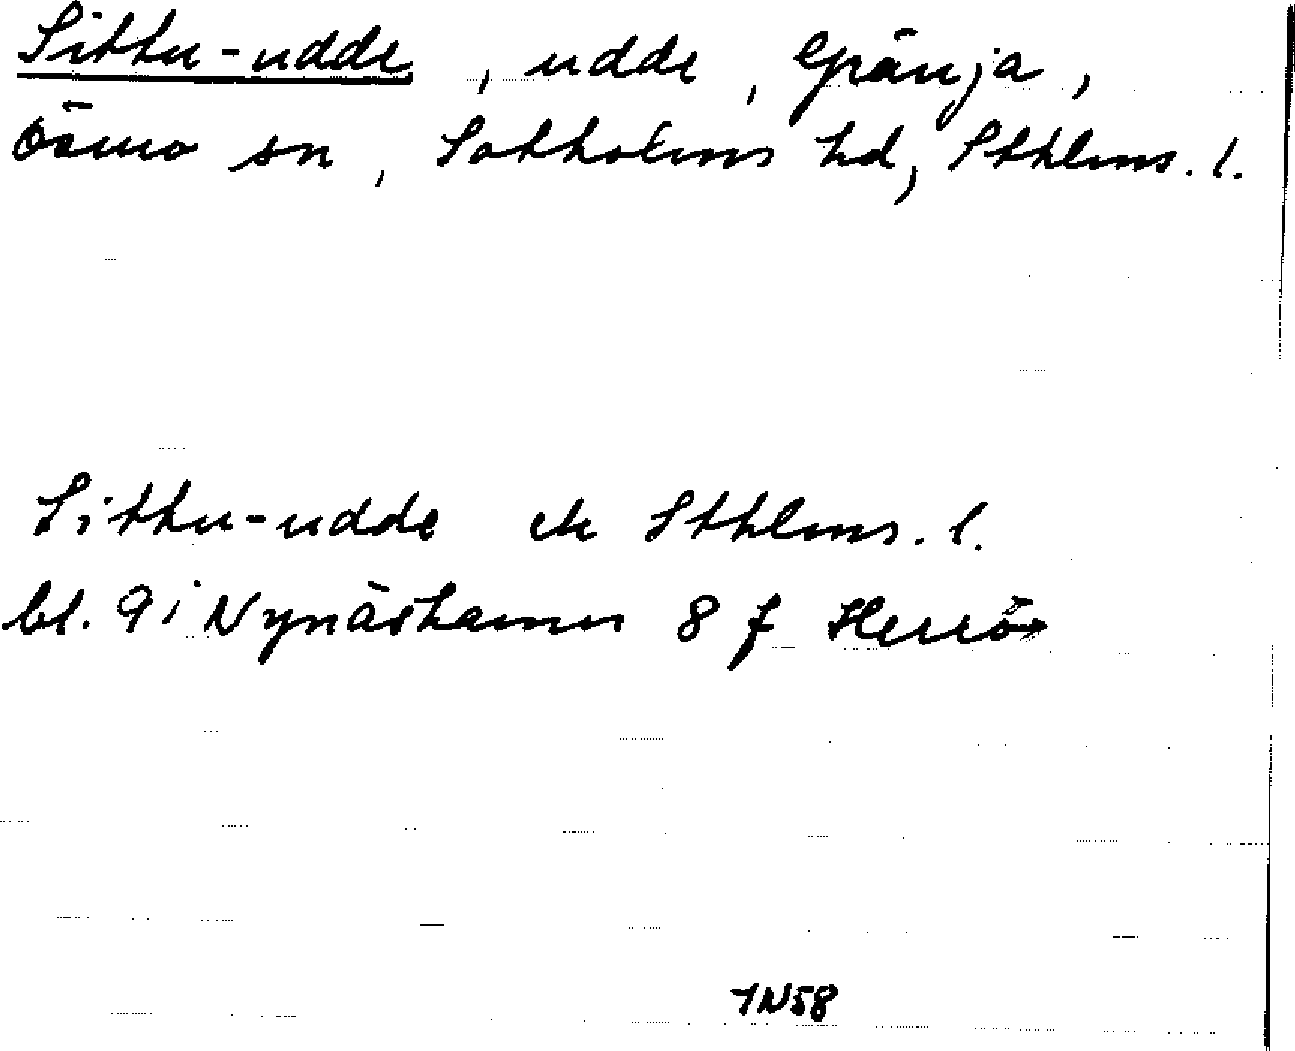 Sittu-udde, udde, Gränja,
Ösmo sn, Sotholms hd, Sthlms. l.
Sittu-udde ek Sthlms. l.
bl. 9 i Nynäshamn 8 f Herrö
7N58